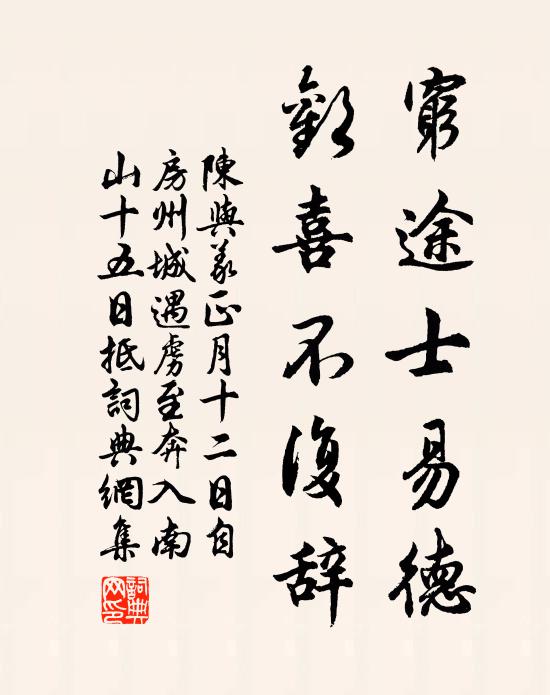 窮途士易德
歡喜不復辞
陳與義正月十二日自
房州城遇虜至奔入南
山十五日抵詞典網集
詞典
网印